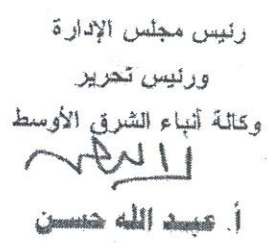 رئيس مجلس الإدارة
ورئيس تحرير
وكالة أنباء الشرق الأوسط
أ. عبد الله حسن